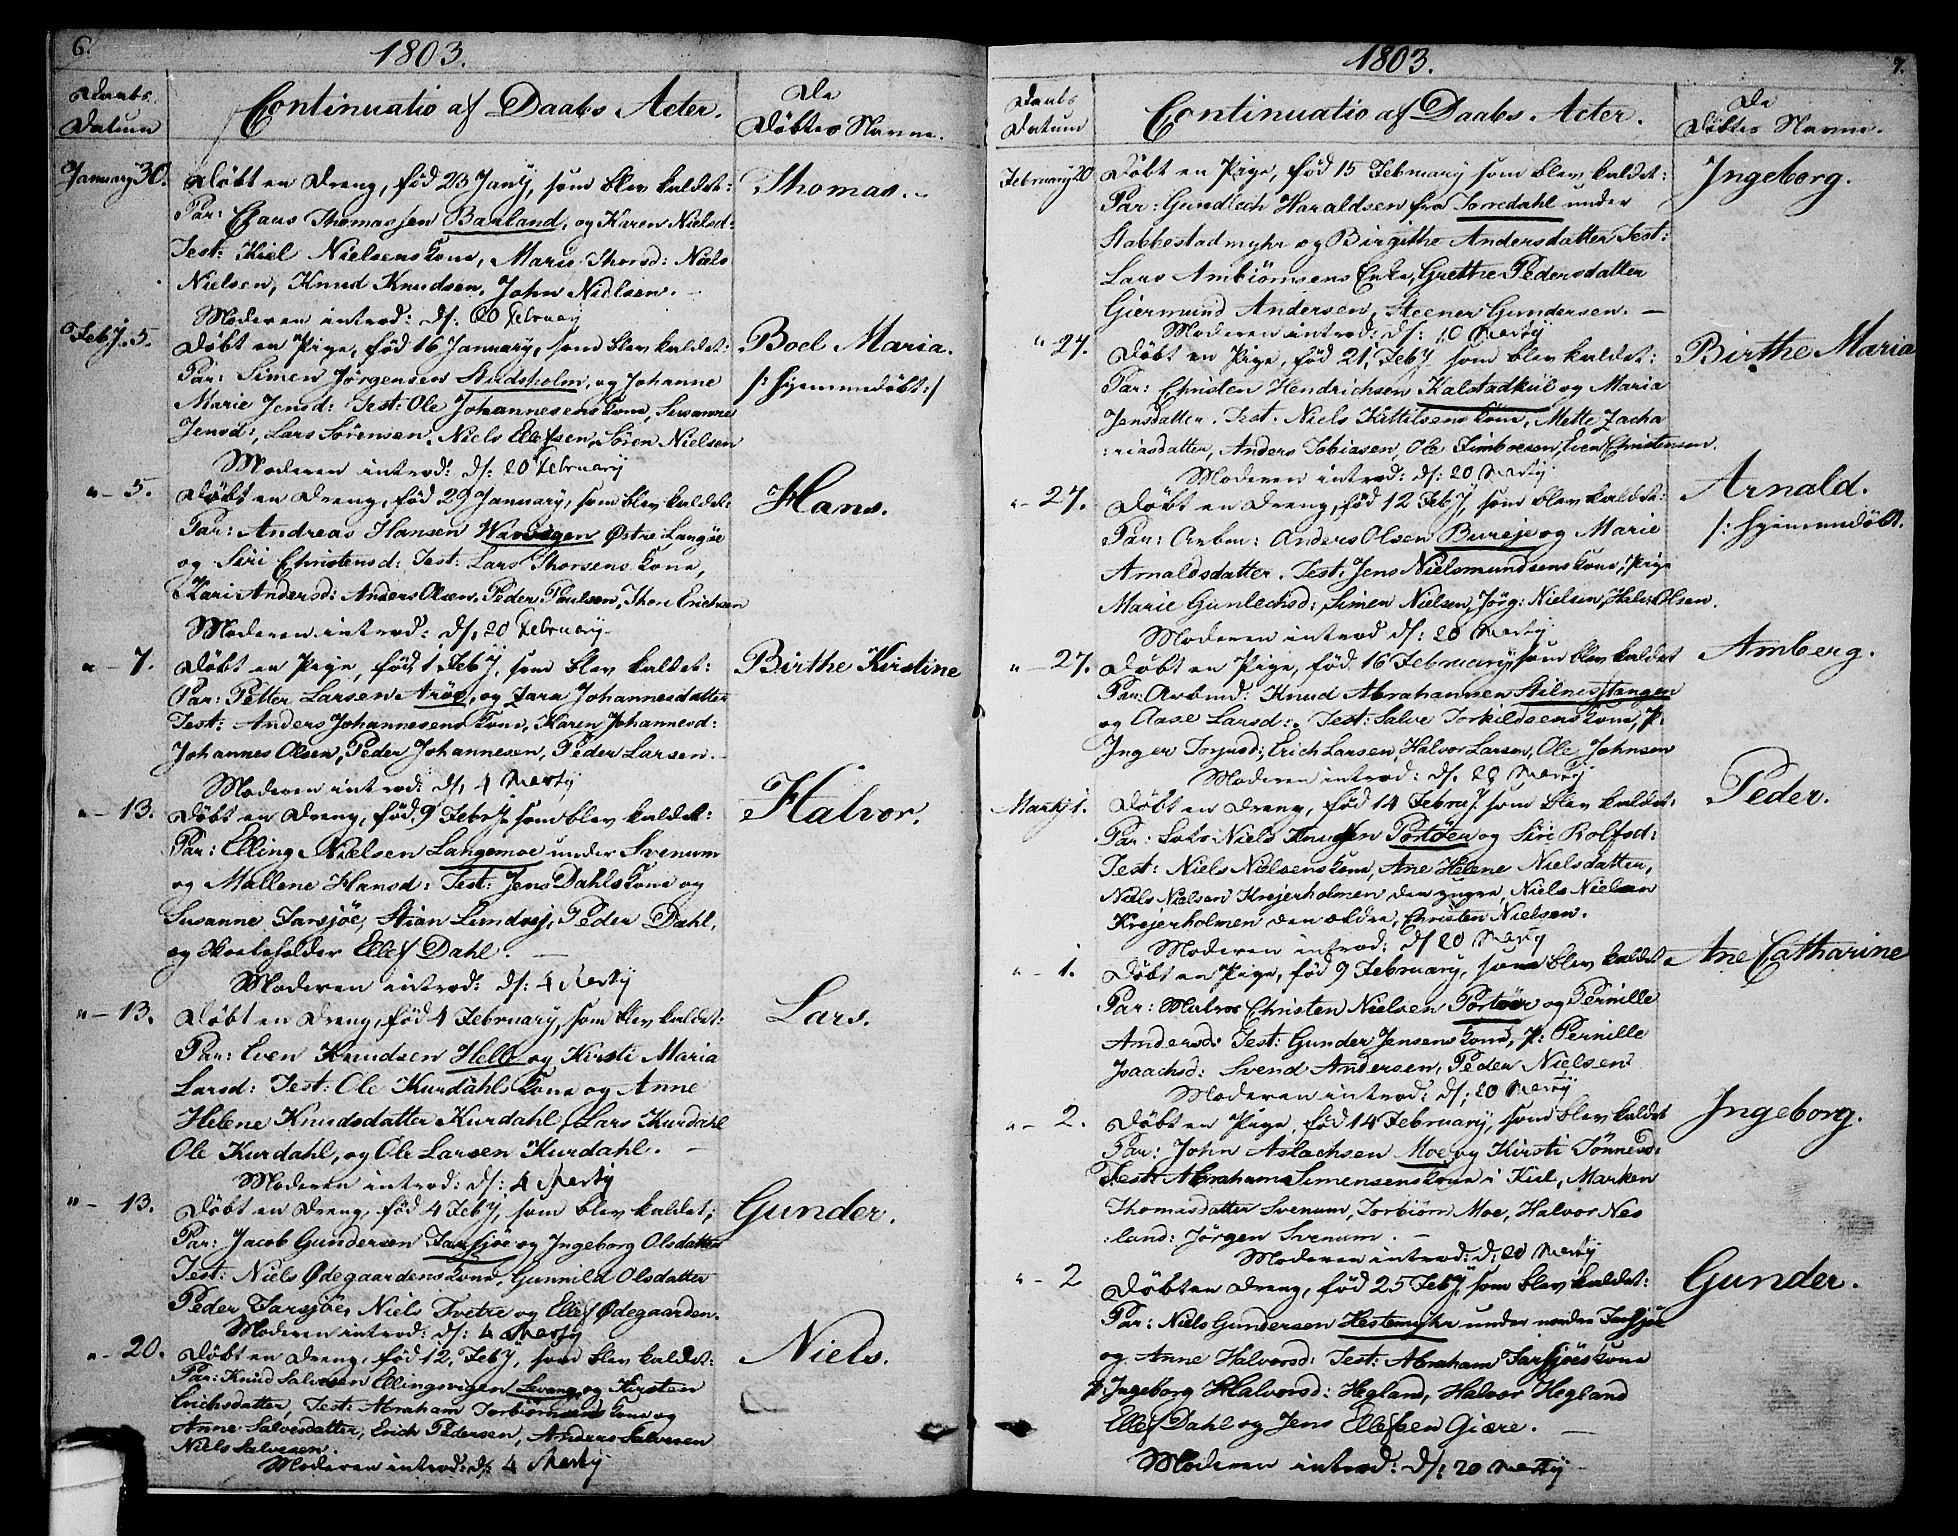 6.
1803.
Daabs Datum
Continuatio af Daabs Acter.
De Døbtes Navne.
January 30.
Døbt en Dreng, fød 23 Jany, som blev kaldet:
Thomas.
Par: Claus Thomassen Barland, og Karen Nielsd:
Test: Kiel Nielsens Kone, Marie Thorsd: Niels
Nielsen, Knud Knudsen, John Nielsen.
Moderen introd: d: 20 February
Feby. 5.
Døbt en Pige, fød 16 January, som blev kaldet:
Boel Maria.
Par: Simen Jørgensen Studsholm, og Johanne
/: hjemmedøbt :/
Marie Jensd: Test: Ole Johannesens Kone, Susanne
Jensd:, Lars Sørensen, Niels Ellefsen, Søren Nielsen
Moderen introd: d: 20 February
" - 5.
Døbt en Dreng, fød 29 January, som blev kaldet:
Hans.
Par: Andreas Hansen Østre Langøe
og Siri Christensd: Test: Lars Thorsens Kone,
Kari Andersd: Anders Olsen, Peder Poulsen, Thore Erichsen
Moderen introd: d: 20 February
" - 7.
Døbt en Pige, fød 1 Feby, som blev kaldet:
Birthe Kirstine
Par: Petter Larsen Arøe, og Zara Johannesdatter
Test: Anders Johannesens Kone, Karen Johannesd:
Johannes Olsen, Peder Johannesen, Peder Larsen.
Moderen introd: d: 4 Marty
" - 13.
Døbt en Dreng, fød 9 Febry. som blev kaldet:
Halvor.
Par: Elling Nielsen Langemoe under Svenum
og Mallene Hansd: Test: Jens Dahls Kone og
Susanne Farsjøe, Stian Lundvej, Peder Dahl,
og Ellef Dahl.
Moderen introd: d: 4 Marty
" - 13.
Døbt en Dreng, fød 4 February, som blev kaldet:
Lars.
Par: Even Knudsen Helle og Kirsti Maria
Larsd: Test: Ole Kurdahls Kone og Anne
Helene Knudsdatter Kurdahl, Lars Kurdahl
Ole Kurdahl, og Ole Larsen Kurdahl.
Moderen introd: d: 4 Marty
" - 13.
Døbt en Dreng, fød 4 Feby, som blev kaldet;
Gunder.
Par: Jacob Gundersen Farsjøe og Ingeborg Olsdatter
Test: Niels Ødegaardens Kone, Gunnild Olsdatter
Peder Farsjøe, Niels Tvetre og Ellef Ødegaarden.
Moderen introd: d: 4 Marty
" - 20.
Døbt en Dreng, fød 12, Feby, som blev kaldet:
Niels.
Par: Knud Salvesen Ellingsvigen Levang, og Kirsten
Erichsdatter, Test: Abraham Torbiørnsens Kone og
Anne Salvesdatter, Erich Pedersen, Anders Salvesen
Niels Salvesen.
Moderen introd: d: 4 Marty
1803.
7.
Daabs Datum
Continuatio af Daabs Acter.
De Døbtes Navne.
February 20
Døbt en Pige, fød 15 February som blev kaldet:
Ingeborg.
Par: Gundlech Haraldsen fra Torredahl under
Stabbestadmyhr og Birgithe Andersdatter Test:
Lars Ambiørnsens Enke, Grethe Pedersdatter
Giermund Andersen, Steener Gundersen.
Moderen introd: d: 10 Marty
" 27.
Døbt en Pige, fød 21, Feby som blev kaldet:
Birthe Maria
Par: Christen Hendrichsen Kalstadkiil og Maria
Jensdatter. Test. Niels Kittilsens Kone, Mette Zacha
:riasdatter, Anders Tobiasen, Ole Even Christensen.
Moderen introd: d: 20 Marty
" - 27.
Døbt en Dreng, fød 12 Feby, som blev kaldet:
Arnald.
Par: Arben: Anders Olsen Bureje og Marie
/: hjemmedøbt.
Arnaldsdatter. Test: Jens Nielsmundsens Kone, Pige
Marie Gunlechsd: Simen Nielsen, Jørg: Nielsen, Halv: Olsen.
Moderen introd d: 20 Marty
" - 27.
Døbt en Pige, fød 16 February, som blev kaldet
Amberg.
Par: Arbmd: Knud Abrahamsen Stilnestangen
og Aase Larsd:. Test: Salve Torkildsens Kone, P:
Inger Torjusd; Erich Larsen, Halvor Larsen, Ole Johnsen
Moderen introd: d: 20 Marty
Marty 1.
Døbt en Dreng, fød 14 Febru, som blev kaldet:
Peder.
Par: Lots Niels Knudsen Portøer og Siri Rolfsd:
Test: Niels Nielsens Kone, Ane Helene Nielsdatter,
Niels Nielsen Krejerholmen den yngre, Niels Nielsen
Krejerholmen den ældre, Christen Nielsen.
Moderen introd: d 20 Marty
" - 1.
Døbt en Pige, fød 9 February, som blev kaldet
Ane Catharine
Par: Matros Christen Nielsen Portøer og Pernille
Andersd: Test: Gunder Jensens Kone, P: Pernille
Isaachsd: Svend Andersen, Peder Nielsen
Moderen introd: d: 20 Marty
" - 2.
Døbt en Pige, fød 14 February, som blev kaldet
Ingeborg.
Par: John Aslachsen Moe og Kirsti Tønnesd:
Test: Abraham Simensens Kone i Kiil, Marken
Thomasdatter Svenum, Torbiørn Moe, Halvor Nes
:land: Jørgen Svenum.
Moderen introd: d; 20 Marty
" - 2
Døbt en Dreng, fød 25 Feby, som blev kaldet:
Gunder.
Par: Niels Gundersen Hestemyhr under nordre Farsjøe
og Anne Halvorsd: Test: Abraham Farsjøes Kone
P: Ingeborg Halvorsd: Hegland, Halvor Hegland
Ellef Dahl og Jens Ellefsen Giære.
Moderen introd: d: 20 Marty